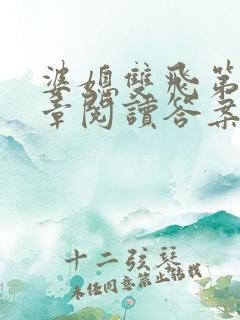 婆媳雙飛第
章閱讀答案
十二弦琵
未经同意禁止转载